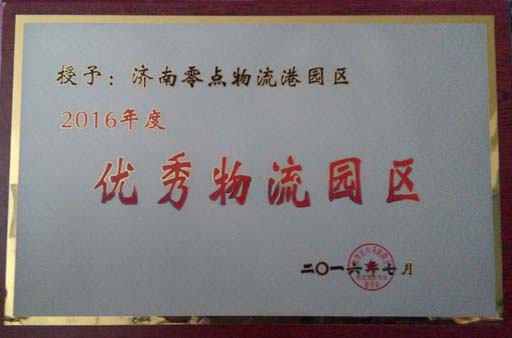 授予：济南零点物流港园区
2016年度
优秀物流园区
二〇一六年七月